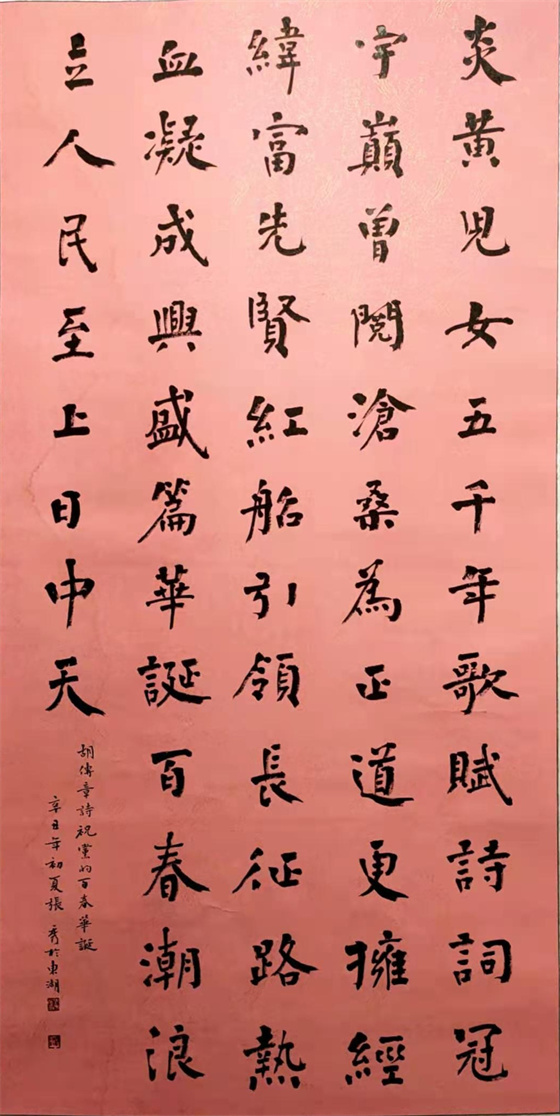 炎黃兒女五千年歌賦詩詞冠
宇巔曾閱滄桑為正道更擁經
緯富先賢紅船引領長征路熱
血凝成興盛篇華誕百春潮浪
立人民至上日中天
胡傳章詩祝黨的百春華誕
辛丑年初夏張秀於東湖